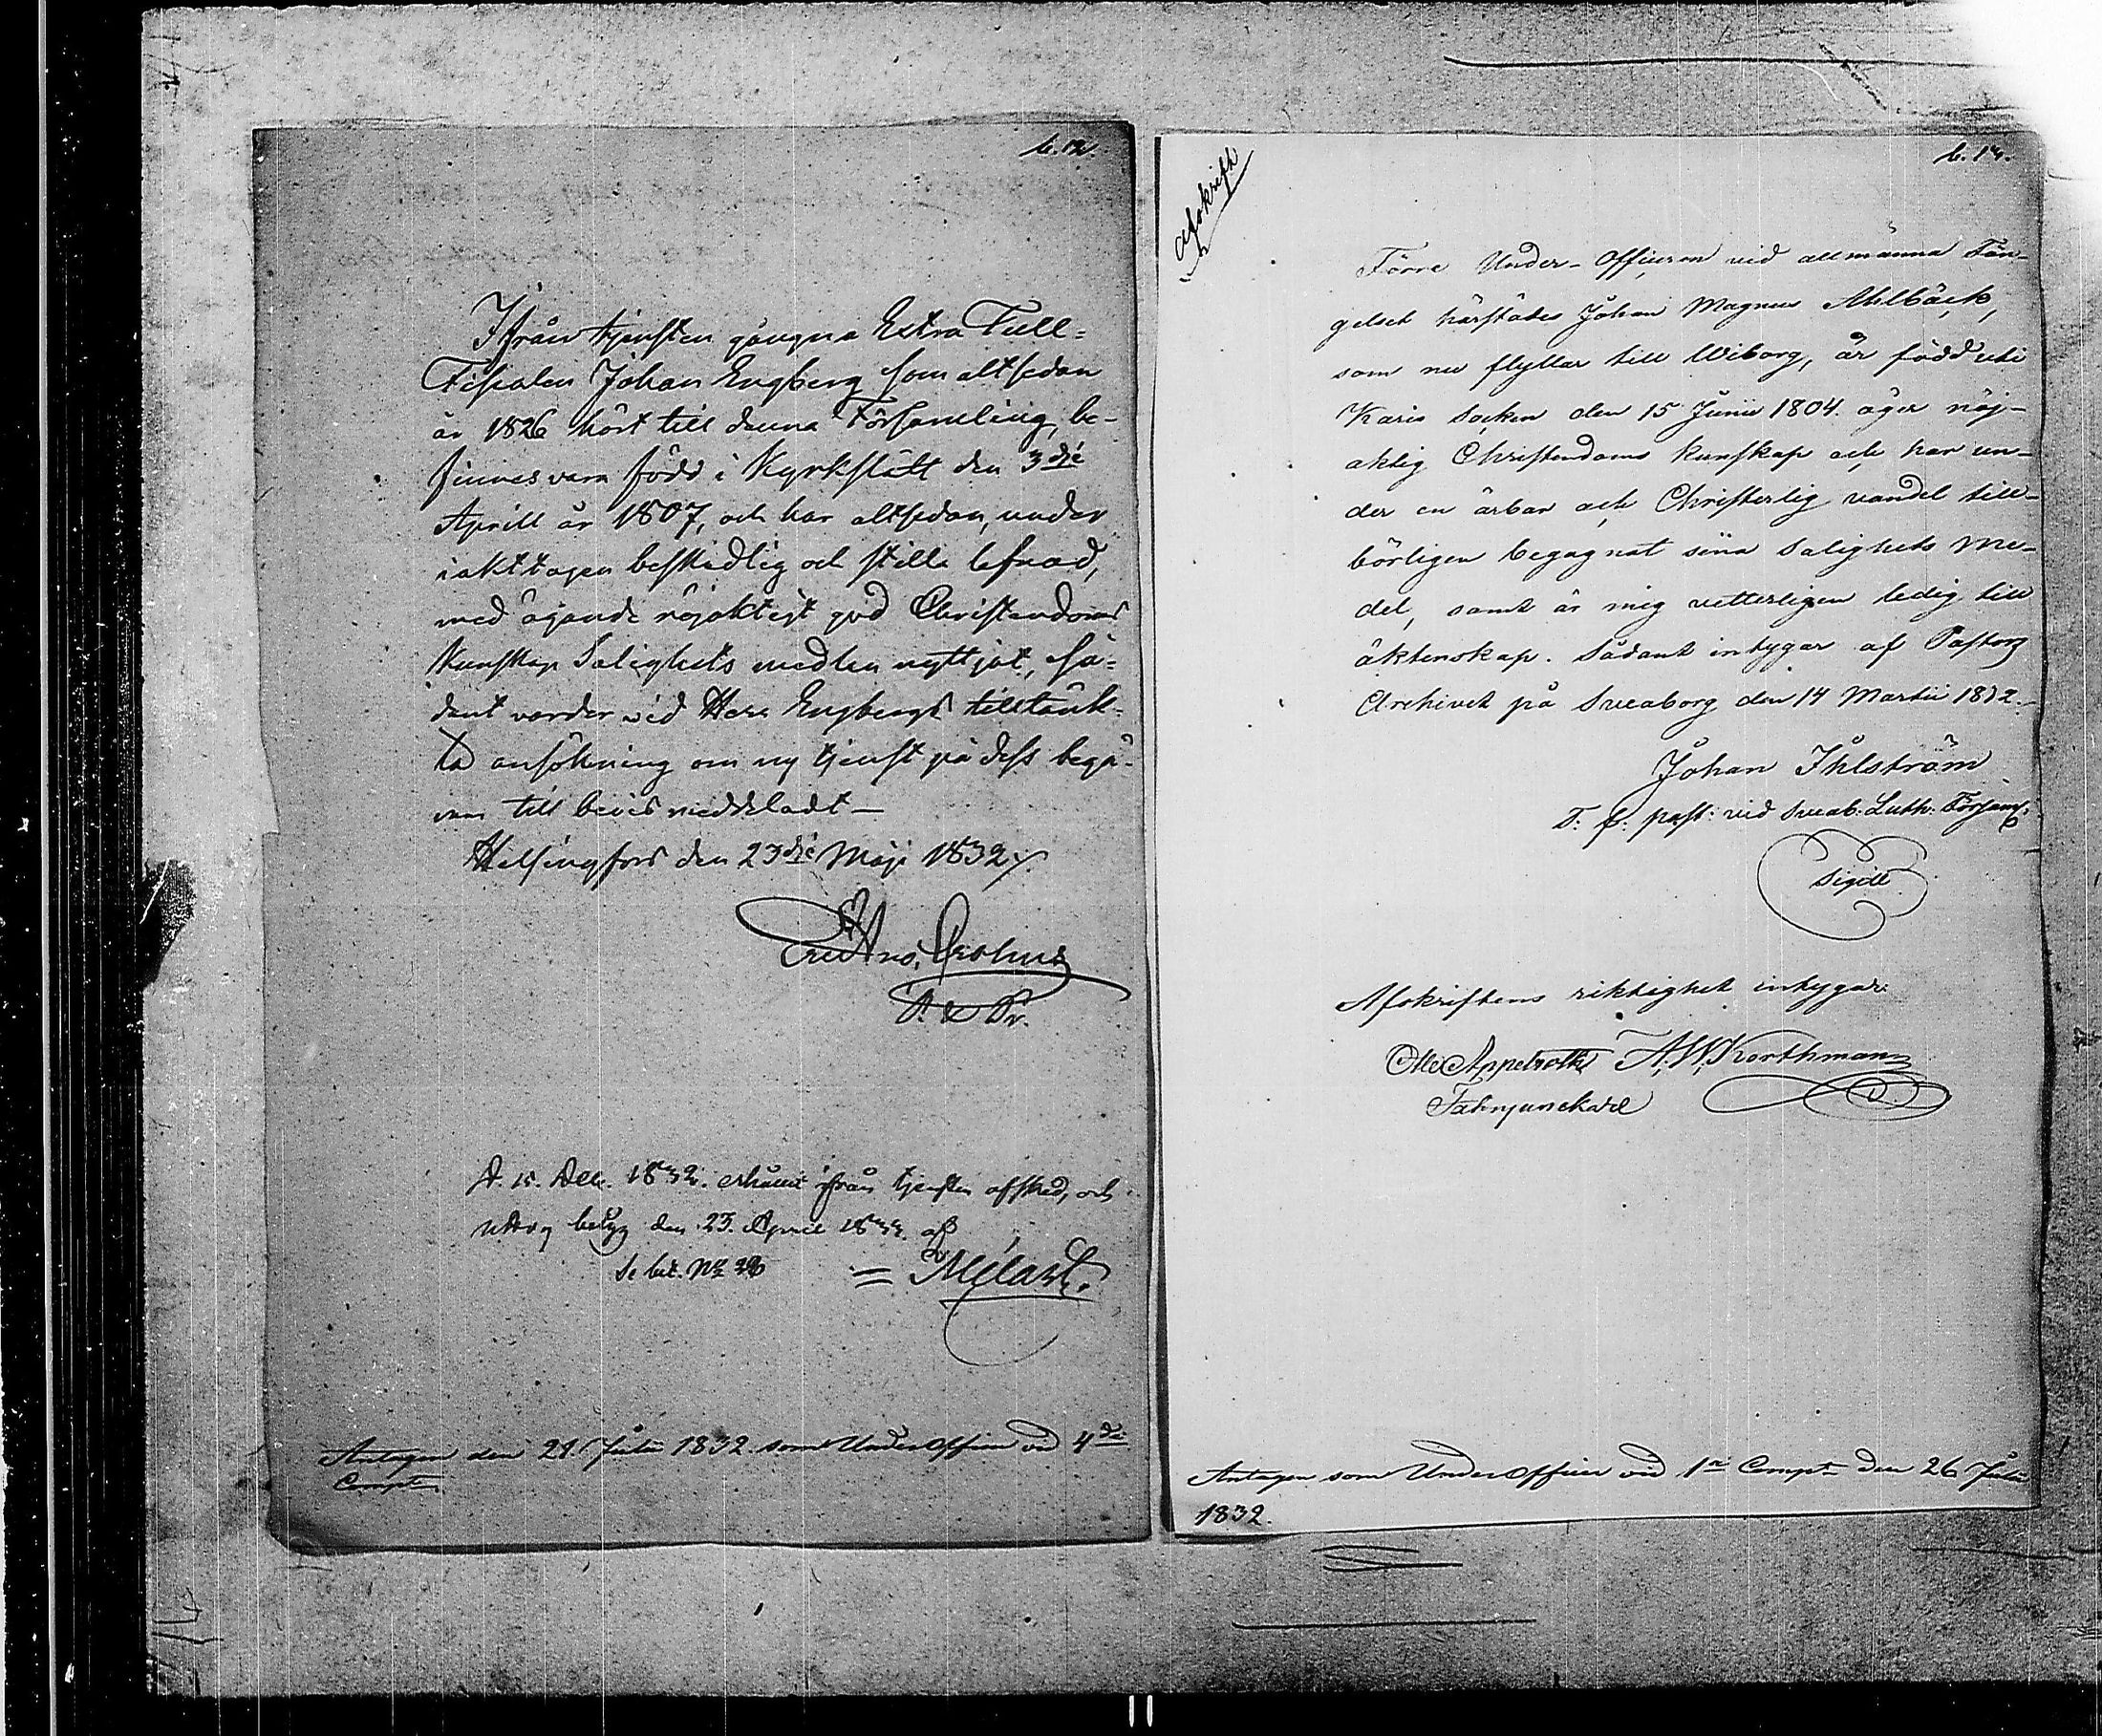 b. 12.
Ifrån tjensten gångne Extra Tull=
Fiskalen Johan Engberg som altsedan
år 1826 hört till denna Församling, be-
finnes vara född i Kyrkslätt den 3dje
Aprill år 1807, och har altsedan, under
iakttagen beskedlig och stilla lefnad,
med ägande nöjaktigt god Christendoms
Kunskap Salighets medlen nyttjat, så=
dant varder vid Herr Engbergs tilltänk=
ta ansökning om ny tjenst på dess begä-
ran till bevis meddeladt —
Helsingfors den 23dje Maji 1832.
Crohns
D. 15. Dec. 1832. erhållit ifrån tjensten afsked, och
uttog betyg den 23. April 1833. af
Se bet. No
Melart.
Antagen den 21 Julii 1832 som UnderOfficer vid 4de
Compt
Afskrift
b. 13.
Förre Under-Officeren vid allmänna Fän-
gelset härstädes Johan Magnus Ahlbäck,
som nu flyttar till Wiborg, är född uti
Karis Socken den 15 Junii 1804. äger nöj-
aktig Christendoms kunskap och har un-
der en ärbar och Christerlig vandel till-
börligen begagnat sina Salighets me-
del, samt är mig vetterligen ledig till
äktenskap. Sådant intygar af Pastors
Archivet på Sveaborg den 14 Martii 1832.
Johan Ihlström
T. f. past: vid Sveab: Luth: Församl:
Sigill
Afskriftens riktighet intygar:
Otto Appelroth A. W. Korthman
Fahnjunckare
Antagen som UnderOfficer vid 1a Compt den 26 Julii
1832.